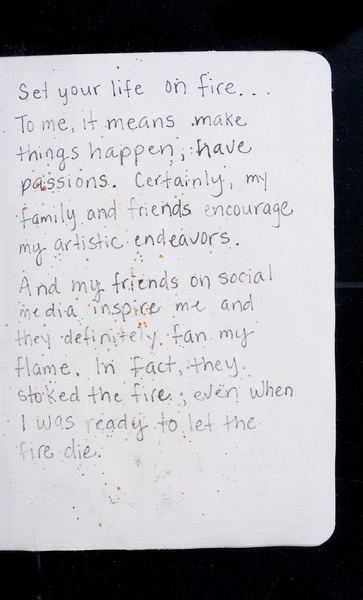 Set your life on fire...
To me, it means make
things happen, have
passions. Certainly, my
family and friends encourage
my artistic endeavors.
And my friends on social
media inspire me and
they definitely fan my
flame. In fact, they
stoked the fire, even when
I was ready to let the
fire die.